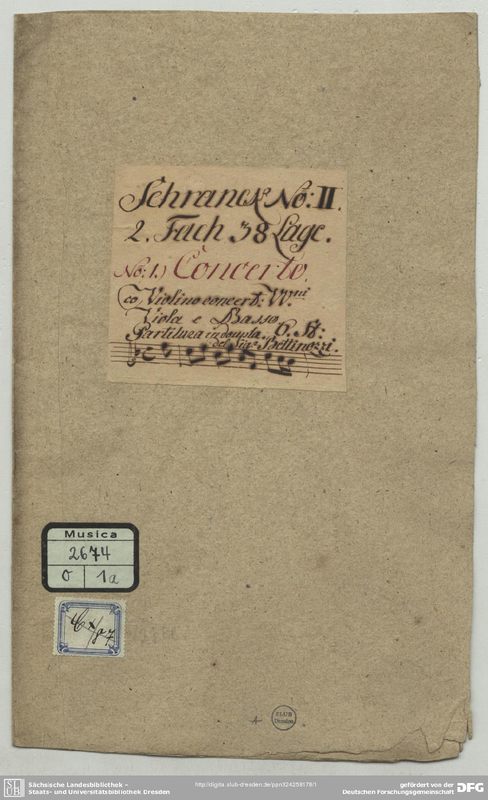 Schranck No: II.
2. Fach 38 Lage.
No: 1.) Concerto.
co Violino concert: VV.ni
Viola e Basso.
Partitura in doupla. 6. St:
del Sig.r Bellinozzi.
Musica
2674
O 1a
SLUB
Dresden
SLUB
Sächsische Landesbibliothek –
Staats- und Universitätsbibliothek Dresden
http://digital.slub-dresden.de/ppn324258178/1
gefördert von der
Deutschen Forschungsgemeinschaft
DFG